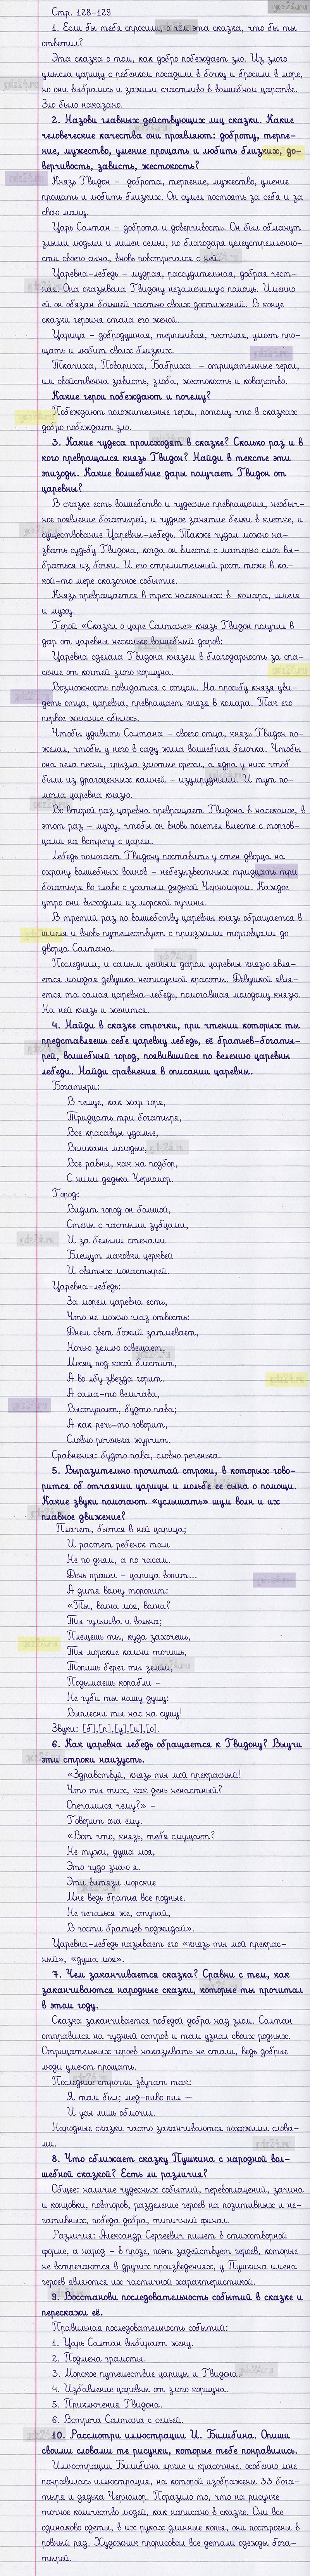 Стр. 128-129
1. Если бы тебя спросили, о чём эта сказка, что бы ты
ответил?
Эта сказка о том, как добро побеждает зло. Из злого
умысла царицу с ребенком посадили в бочку и бросили в море,
но они выбрались и зажили счастливо в волшебном царстве.
Зло было наказано.
2. Назови главных действующих лиц сказки. Какие
человеческие качества они проявляют: доброту, терпе-
ние, мужество, умение прощать и любить близких, до-
верчивость, зависть, жестокость?
Князь Гвидон – доброта, терпение, мужество, умение
прощать и любить близких. Он сумел постоять за себя и за
свою маму.
Царь Салтан – доброта и доверчивость. Он был обманут
злыми людьми и лишен семьи, но благодаря целеустремленно-
сти своего сына, вновь повстречался с ней.
Царевна-лебедь – мудрая, рассудительная, добрая чест-
ная. Она оказывала Гвидону незаменимую помощь. Именно
ей он обязан большей частью своих достижений. В конце
сказки героиня стала его женой.
Царица – добродушная, терпеливая, честная, умеет про-
щать и любит своих близких.
Ткачиха, Повариха, Бабриха – отрицательные герои,
им свойственна зависть, злоба, жестокость и коварство.
Какие герои побеждают и почему?
Побеждают положительные герои, потому что в сказках
добро побеждает зло.
3. Какие чудеса происходят в сказке? Сколько раз и в
кого превращался князь Гвидон? Найди в тексте эти
эпизоды. Какие волшебные дары получает Гвидон от
царевны?
В сказке есть волшебство и чудесные превращения, необыч-
ное появление богатырей, и чудное занятие белки в клетке, и
существование Царевны-лебедь. Также чудом можно на-
звать судьбу Гвидона, когда он вместе с матерью смог вы-
браться из бочки. И его стремительный рост тоже в ка-
кой-то мере сказочное событие.
Князь превращается в трех насекомых: в комара, шмеля
и муху.
Герой «Сказки о царе Салтане» князь Гвидон получил в
дар от царевны несколько волшебный даров:
Царевна сделала Гвидона князем в благодарность за спа-
сение от когтей злого коршуна.
Возможность повидаться с отцом. На просьбу князя уви-
деть отца, царевна, превращает князя в комара. Так его
первое желание сбылось.
Чтобы удивить Салтана – своего отца, князь Гвидон по-
желал, чтобы у него в саду жила волшебная белочка. Чтобы
она пела песни, грызла золотые орехи, а ядра у них чтоб
были из драгоценных камней – изумрудными. И тут по-
могла царевна князю.
Во второй раз царевна превращает Гвидона в насекомое, в
этот раз – муху, чтобы он вновь полетел вместе с торгов-
цами на встречу с царем.
Лебедь помогает Гвидону поставить у стен дворца на
охрану волшебных воинов – небезызвестных тридцать три
богатыря во главе с усатым дядькой Черномором. Каждое
утро они выходили из морской пучины.
В третий раз по волшебству царевны князь обращается в
шмеля и вновь путешествует с приезжими торговцами до
дворца Салтана.
Последним, и самым ценным даром царевны князю явля-
ется молодая девушка неописуемой красоты. Девушкой явля-
ется та самая царевна-лебедь, помогавшая молодому князю.
На ней князь и женится.
4. Найди в сказке строчки, при чтении которых ты
представляешь себе царевну лебедь, её братьев-богаты-
рей, волшебный город, появившийся по велению царевны
лебеди. Найди сравнения в описании царевны.
Богатыри:
В чешуе, как жар горя,
Тридцать три богатыря,
Все красавцы удалые,
Великаны молодые,
Все равны, как на подбор,
С ними дядька Черномор.
Город:
Видит город он большой,
Стены с частыми зубцами,
И за белыми стенами
Блещут маковки церквей
И святых монастырей.
Царевна-лебедь:
За морем царевна есть,
Что не можно глаз отвесть:
Днем свет божий затмевает,
Ночью землю освещает,
Месяц под косой блестит,
А во лбу звезда горит.
А сама-то величава,
Выступает, будто пава;
А как речь-то говорит,
Словно реченька журчит.
Сравнения: будто пава, словно реченька.
5. Выразительно прочитай строки, в которых гово-
рится об отчаянии царицы и мольбе её сына о помощи.
Какие звуки помогают «услышать» шум волн и их
плавное движение?
Плачет, бьется в ней царица;
И растет ребенок там
Не по дням, а по часам.
День прошел – царица вопит...
А дитя волну торопит:
«Ты, волна моя, волна?
Ты гульлива и вольна;
Плещешь ты, куда захочешь,
Ты морские камни точишь,
Топишь берег ты земли,
Подымаешь корабли –
Не губи ты нашу душу:
Выплесни ты нас на сушу!
Звуки: [б],[п],[у],[и],[о].
6. Как царевна лебедь обращается к Гвидону? Выучи
эти строки наизусть.
«Здравствуй, князь ты мой прекрасный!
Что ты тих, как день ненастный?
Опечалился чему?» –
Говорит она ему.
«Вот что, князь, тебя смущает?
Не тужи, душа моя,
Это чудо знаю я.
Эти витязи морские
Мне ведь братья все родные.
Не печалься же, ступай,
В гости братцев поджидай».
Царевна-лебедь называет его «князь ты мой прекрас-
ный», «душа моя».
7. Чем заканчивается сказка? Сравни с тем, как
заканчиваются народные сказки, которые ты прочитал
в этом году.
Сказка заканчивается победой добра над злом. Салтан
отправился на чудный остров и там узнал своих родных.
Отрицательных героев наказывать не стали, ведь добрые
люди умеют прощать.
Последние строчки звучат так:
Я там был; мед-пиво пил –
И усы лишь обмочил.
Народные сказки часто заканчиваются похожими слова-
ми.
8. Что сближает сказку Пушкина с народной вол-
шебной сказкой? Есть ли различия?
Общее: наличие чудесных событий, перевоплощений, зачина
и концовки, повторов, разделение героев на позитивных и не-
гативных, победа добра, типичный финал.
Различия: Александр Сергеевич пишет в стихотворной
форме, а народ – в прозе, поэт задействует героев, которые
не встречаются в других произведениях, у Пушкина имена
героев являются их частичной характеристикой.
9. Восстанови последовательность событий в сказке и
перескажи её.
Правильная последовательность событий:
1. Царь Салтан выбирает жену.
2. Подмена грамоты.
3. Морское путешествие царицы и Гвидона.
4. Избавление царевны от злого коршуна.
5. Приключения Гвидона.
6. Встреча Салтана с семьей.
10. Рассмотри иллюстрации И. Билибина. Опиши
своими словами те рисунки, которые тебе понравились.
Иллюстрации Билибина яркие и красочные. особенно мне
понравилась иллюстрация, на которой изображены 33 бога-
тыря и дядька Черномор. Поразило то, что на рисунке
точное количество людей, как написано в сказке. Они все
одинаково одеты, в их руках длинные копья, они построены в
ровный ряд. Художник прорисовал все детали одежды бога-
тырей.